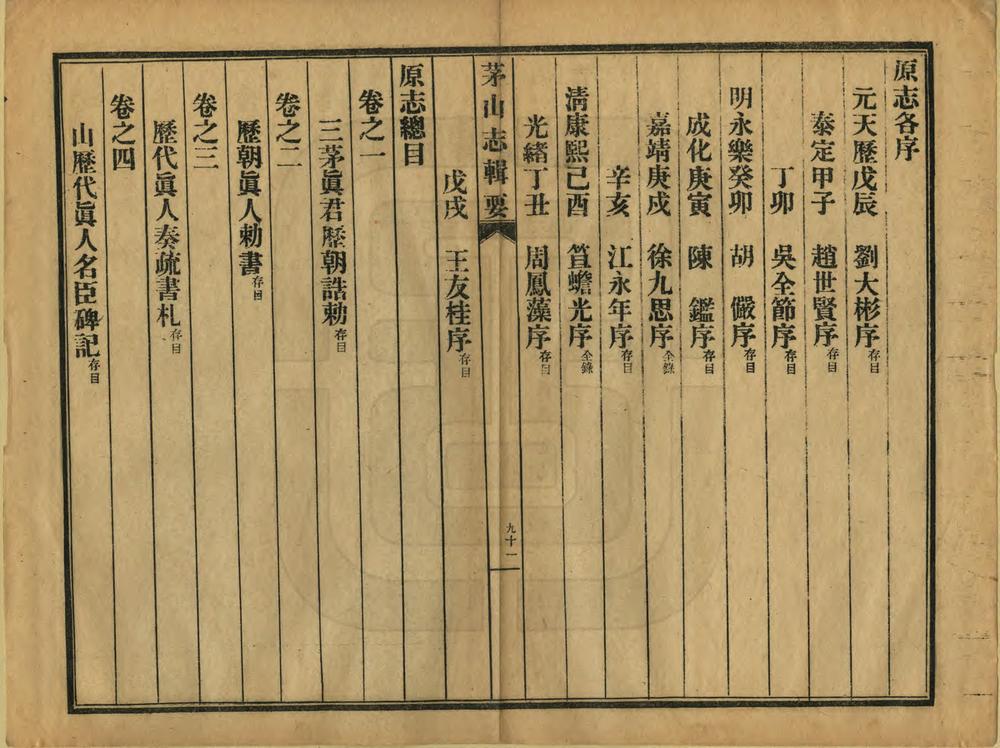 原志各序
元天歷戊辰　劉大彬序存目
泰定甲子　趙世賢序存目
丁卯　吳全節序存目
明永樂癸卯　胡　儼序存目
成化庚寅　陳　鑑序存目
嘉靖庚戌　徐九思序全錄
辛亥　江永年序存目
清康熙己酉　笪蟾光序全錄
光緒丁丑　周鳳藻序存目
茅山志輯要
九十一
戊戌　王友桂序存目
原志總目
卷之一
三茅眞君歷朝誥勅存目
卷之二
歷朝眞人勅書存目
卷之三
歷代眞人奏疏書札存目
卷之四
山歷代眞人名臣碑記存目